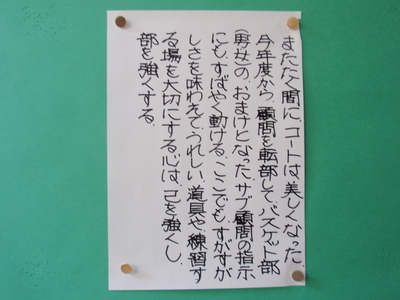 またたく間に、コートは、美しくなった。
今年度から、顧問を転部して、バスケット部
(男女)の、おまけとなった、サブ顧問の指示
にも、すばやく動ける。ここでも、すがすが
しさを味わえて、うれしい。道具や、練習す
る場を大切にする心は、己を強くし、
部を強くする。